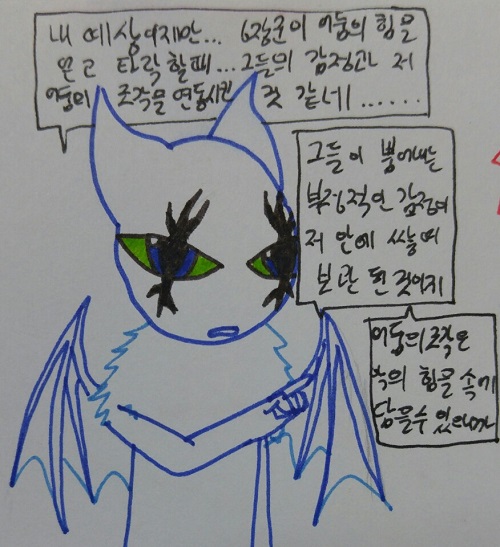 내 예상이지만... 6장군이 어둠의 힘을
얻고 타락할때... 그들의 감정과 저
어둠의 조각을 연동시킨 것 같네......
그들이 뿜어내는
부정적인 감정이
저 안에 쌓일때
보관된 것이지
어둠의 조각은
악의 힘을 속에
담을수 있으니까